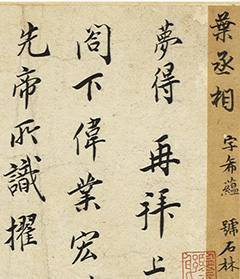 葉丞相 字希蘊 號石林
夢得 再拜上
閤下偉業宏
先帝所識擢